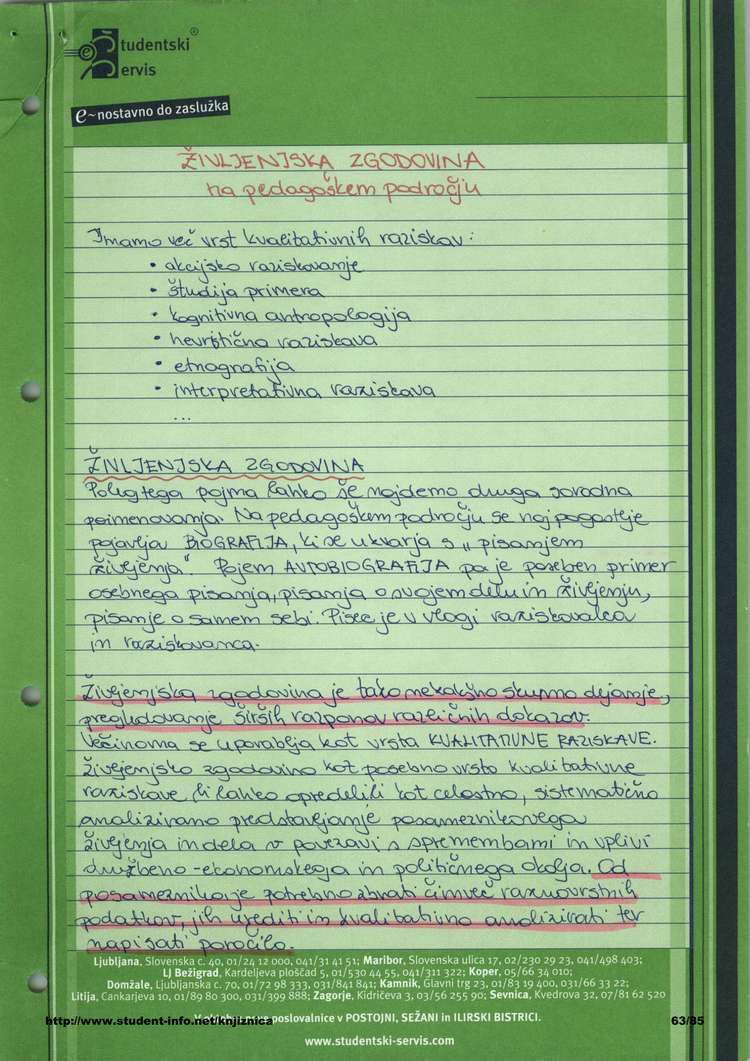 Študentski®
Servis
e~nostavno do zaslužka
ŽIVLJENJSKA ZGODOVINA
na pedagoškem področju
Imamo več vrst kvalitativnih raziskav:
• akcijsko raziskovanje
• študija primera
• kognitivna antropologija
• hevristična raziskava
• etnografija
• interpretativna raziskava
...
ŽIVLJENJSKA ZGODOVINA
Poleg tega pojma lahko še najdemo druga sorodna
poimenovanja. Na pedagoškem področju se najpogosteje
pojavlja BIOGRAFIJA, ki se ukvarja s „pisanjem
življenja“. Pojem AVTOBIOGRAFIJA pa je poseben primer
osebnega pisanja, pisanja o svojem delu in življenju,
pisanje o samem sebi. Pisec je v vlogi raziskovalca
in raziskovanca.
Življenjska zgodovina je tako nekakšno skupno dejanje,
pregledovanje širših razponov različnih dokazov.
Večinoma se uporablja kot vrsta KVALITATIVNE RAZISKAVE.
Življenjsko zgodovino kot posebno vrsto kvalitativne
raziskave bi lahko opredelili kot celostno, sistematično
analizirano predstavljanje posameznikovega
življenja in dela v povezavi s spremembami in vplivi
družbeno-ekonomskega in političnega okolja. Od
posameznika je potrebno zbrati čimveč raznovrstnih
podatkov, jih urediti in kvalitativno analizirati ter
napisati poročilo.
Ljubljana, Slovenska c. 40, 01/24 12 000, 041/31 41 51; Maribor, Slovenska ulica 17, 02/230 29 23, 041/498 403;
LJ Bežigrad, Kardeljeva ploščad 5, 01/530 44 55, 041/311 322; Koper, 05/66 34 010;
Domžale, Ljubljanska c. 70, 01/72 98 333, 031/841 841; Kamnik, Glavni trg 23, 01/83 19 400, 031/66 33 22;
Litija, Cankarjeva 10, 01/89 80 300, 031/399 888; Zagorje, Kidričeva 3, 03/56 255 90; Sevnica, Kvedrova 32, 07/81 62 520
poslovalnice v POSTOJNI, SEŽANI in ILIRSKI BISTRICI.
http://www.student-info.net/knjiznica
63/85
www.studentski-servis.com